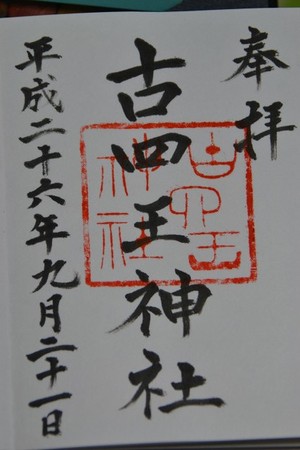 奉拝
古四王神社
古四王
神社
平成二十六年九月二十一日